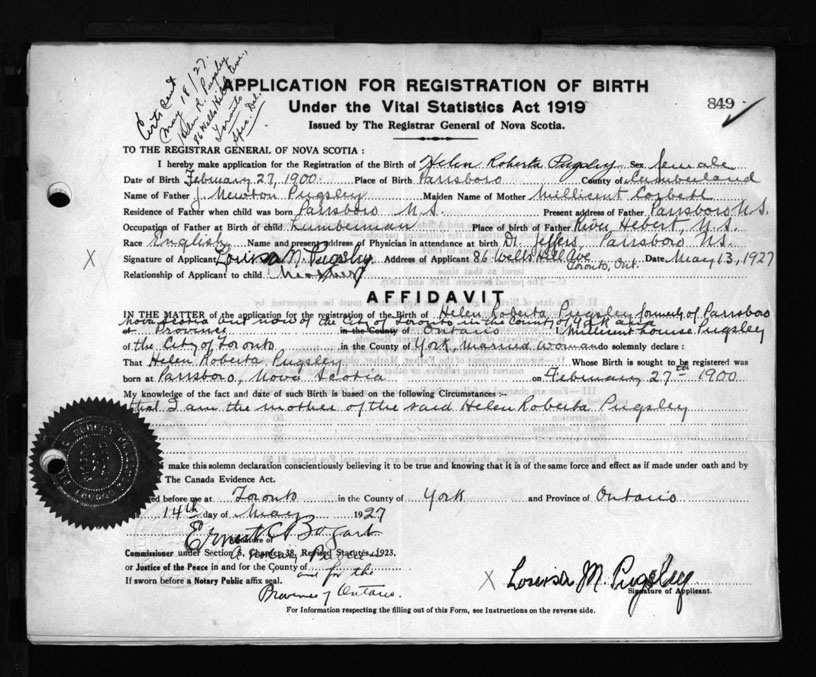 Certs sent
May 18/27.
Helen R. Pugsley
86 Wells Hill Ave.,
Toronto
Spec. Del.
APPLICATION FOR REGISTRATION OF BIRTH
Under the Vital Statistics Act 1919
849
Issued by The Registrar General of Nova Scotia.
TO THE REGISTRAR GENERAL OF NOVA SCOTIA :
I hereby make application for the Registration of the Birth of Helen Roberta Pugsley Sex female
Date of Birth February 27, 1900. Place of Birth Parrsboro County of Cumberland
Name of Father J. Newton Pugsley Maiden Name of Mother Millicent Corbett
Residence of Father when child was born Parrsboro N.S. Present address of Father Parrsboro N.S.
Occupation of Father at Birth of child Lumberman Place of birth of Father River Hebert, N.S.
Race English Name and present address of Physician in attendance at birth Dr. Jeffers, Parrsboro N.S.
X Signature of Applicant Louisa M. Pugsley Address of Applicant 86 Wells Hill Ave Toronto, Ont. Date May 13, 1927
Relationship of Applicant to child Mother
AFFIDAVIT
IN THE MATTER of the application for the registration of the Birth of Helen Roberta Pugsley formerly of Parrsboro
Nova Scotia but now of the City of Toronto in the County of York and
Province in the County of Ontario I Millicent Louise Pugsley
of the City of Toronto in the County of York, Married woman do solemnly declare :
That Helen Roberta Pugsley Whose Birth is sought to be registered was
born at Parrsboro, Nova Scotia on February 27th 1900
My knowledge of the fact and date of such Birth is based on the following Circumstances :-
that I am the mother of the said Helen Roberta Pugsley
make this solemn declaration conscientiously believing it to be true and knowing that it is of the same force and effect as if made under oath and by
The Canada Evidence Act.
before me at Toronto in the County of York and Province of Ontario
14th day of May 1927
Ernest C. Bogart
Signature of
A Notary Public
Commissioner under Section 3, Chapter 38, Revised Statutes, 1923,
or Justice of the Peace in and for the County of
and for the
If sworn before a Notary Public affix seal.
Province of Ontario.
X Louisa M. Pugsley
Signature of Applicant.
For Information respecting the filling out of this Form, see Instructions on the reverse side.